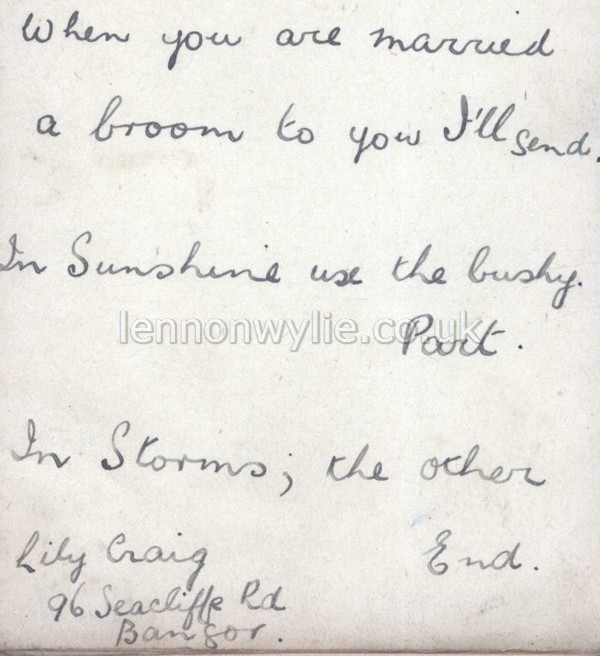 When you are married
a broom to you I'll send.
In Sunshine use the bushy.
Part.
lennonwylie.co.uk
In Storms; the other
End.
Lily Craig
96 Seacliffe Rd
Bangor.